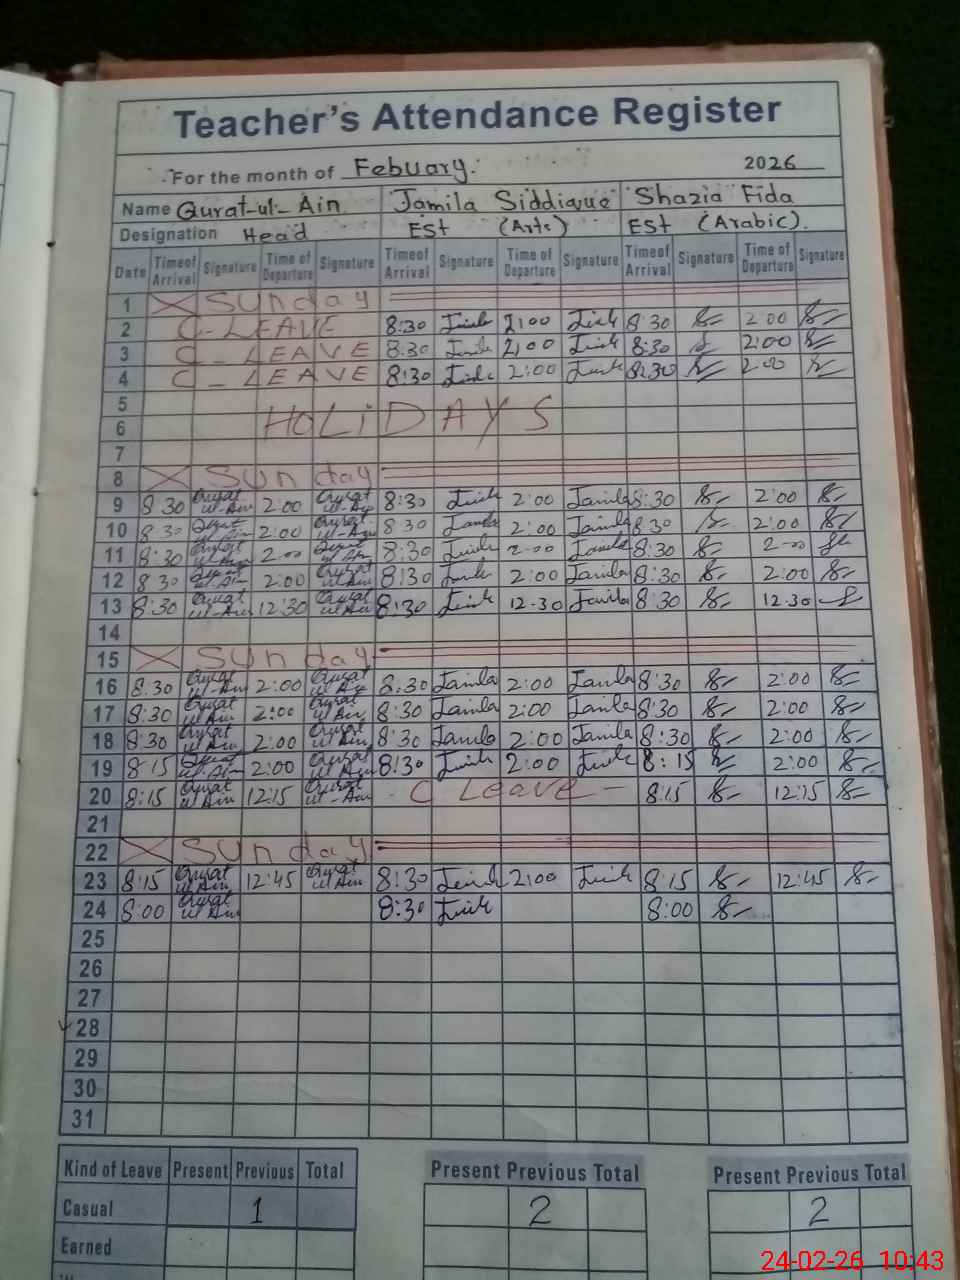 Teacher's Attendance Register
For the month of Febuary. 2026
Name Qurat-ul-Ain Jamila Siddique Shazia Fida
Designation Head EST (Arts) EST (Arabic).
Date Timeof Arrival Signature Time of Departure Signature Timeof Arrival Signature Time of Departure Signature Timeof Arrival Signature Time of Departure Signature
1 Sunday
2 C-LEAVE 8:30 2:00 8:30 2:00
3 C-LEAVE 8:30 2:00 8:30 2:00
4 C-LEAVE 8:30 2:00 8:30 2:00
5
6 HOLiDAYS
7
8 Sunday
9 8:30 Qurat ul-Ain 2:00 Qurat ul-Ain 8:30 2:00 Jamila 8:30 2:00
10 8:30 2:00 Qurat ul-Ain 8:30 Jamila 2:00 Jamila 8:30 2:00
11 8:30 Qurat ul-Ain 2:00 8:30 2:00 Jamila 8:30 2:00
12 8:30 2:00 Qurat ul Ain 8:30 2:00 Jamila 8:30 2:00
13 8:30 Qurat ul-Ain 12:30 Qurat ul Ain 8:30 12:30 Jamila 8:30 12:30
14
15 Sunday
16 8:30 Qurat ul-Ain 2:00 Qurat ul Ain 8:30 Jamila 2:00 Jamila 8:30 2:00
17 8:30 Qurat ul Ain 2:00 Qurat ul Ain 8:30 Jamila 2:00 Jamila 8:30 2:00
18 8:30 Qurat ul Ain 2:00 Qurat ul Ain 8:30 Jamila 2:00 Jamila 8:30 2:00
19 8:15 Qurat ul-Ain 2:00 Qurat ul Ain 8:30 2:00 8:15 2:00
20 8:15 Qurat ul Ain 12:15 Qurat ul-Ain C Leave 8:15 12:15
21
22 Sunday
23 8:15 Qurat ul Ain 12:45 Qurat ul Ain 8:30 2:00 8:15 12:45
24 8:00 Qurat ul Ain 8:30 8:00
25
26
27
28
29
30
31
Kind of Leave Present Previous Total Present Previous Total Present Previous Total
Casual 1 2 2
Earned
24-02-26 10:43